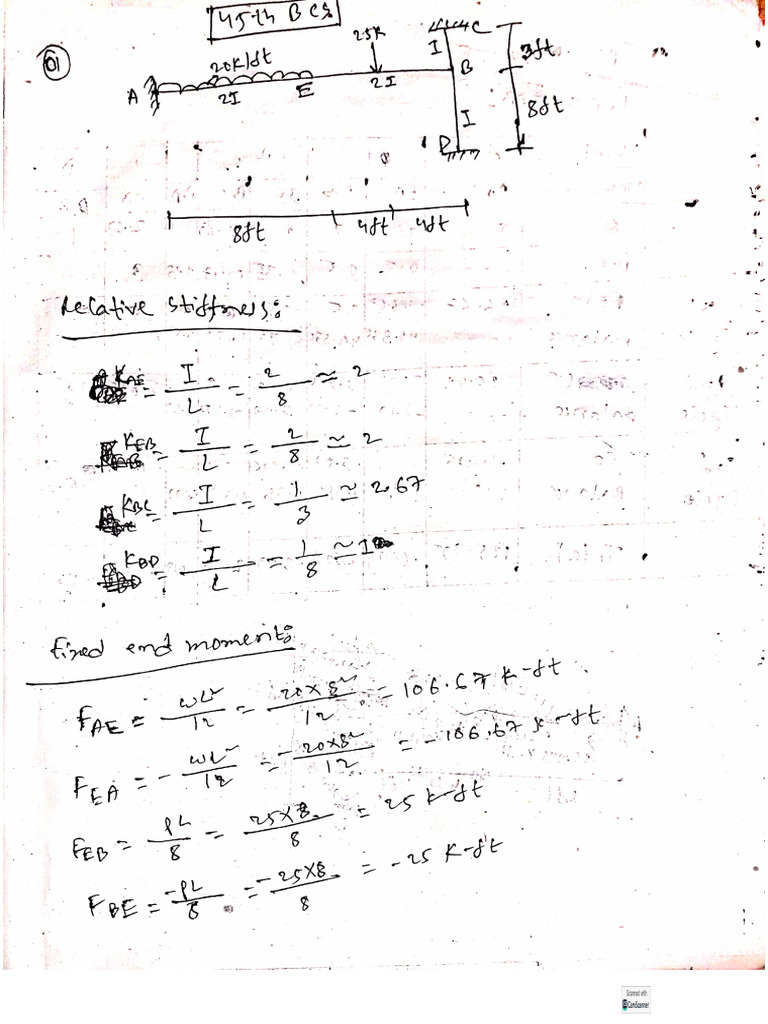 45th BCS
01
20K/ft
25K
C
I
3ft
A
2I
E
2I
B
I
8ft
D
8ft
4ft
4ft
Relative stiffness:
K_AE = I/L = 2/8 ≃ 2
K_EB = I/L = 2/8 ≃ 2
K_BC = I/L = 1/3 ≃ 2.67
K_BD = I/L = 1/8 ≃ 1
fixed end moment:
F_AE = wL²/12 = 20×8²/12 = 106.67 K-ft
F_EA = -wL²/12 = -20×8²/12 = -106.67 K-ft
F_EB = PL/8 = 25×8/8 = 25 K-ft
F_BE = -PL/8 = -25×8/8 = -25 K-ft
Scanned with
CamScanner